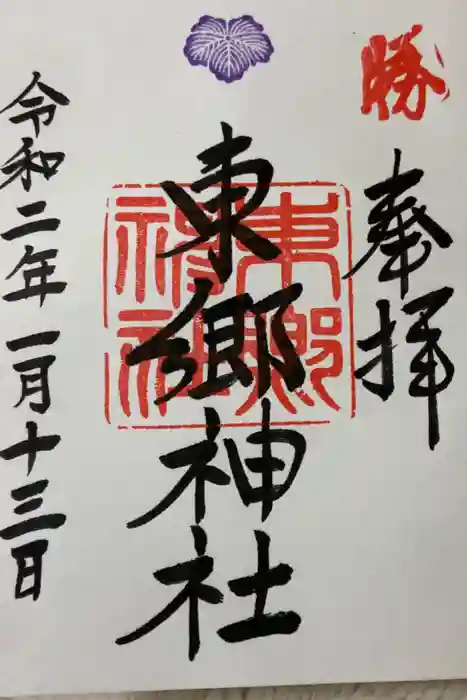 勝
奉拝
東郷神社
東郷神社
令和二年一月十三日